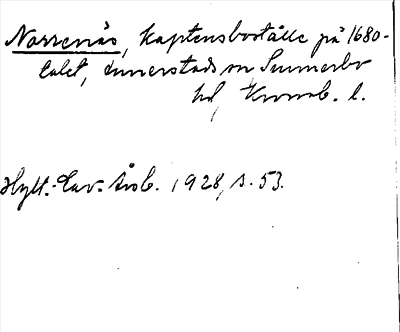 Norrenäs, Kaptensboställe på 1680-
talet, Annerstads sn Sunnerbo
hd, Kronob. l.
Hylt.-Cav. Årsb. 1928, s. 53.